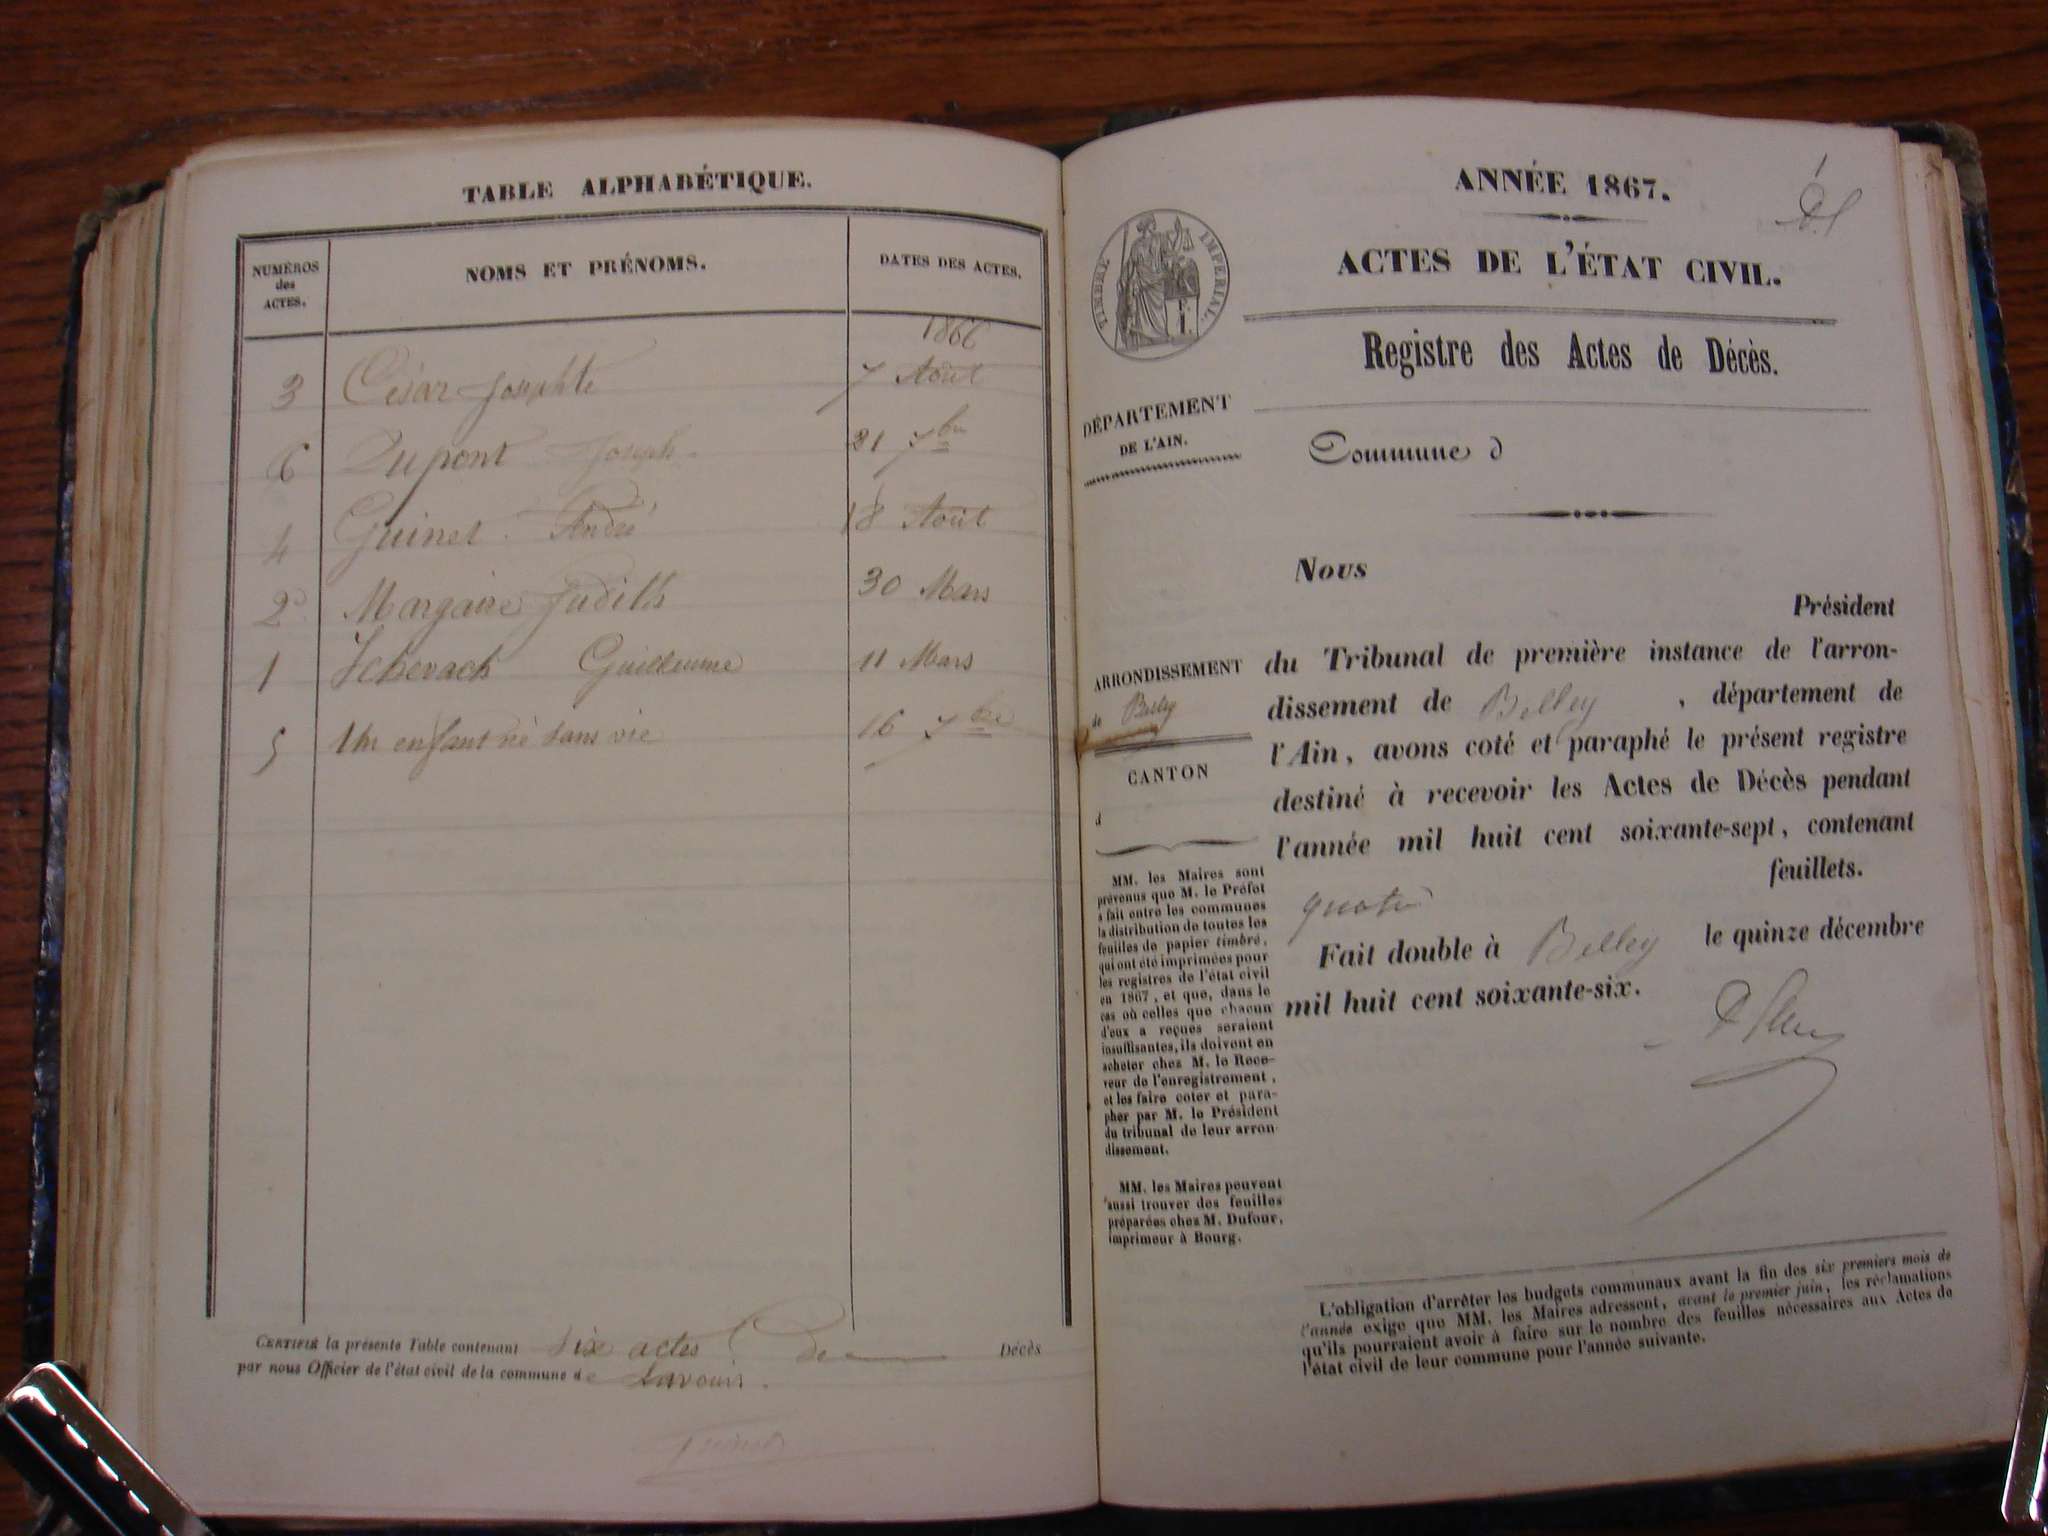 TABLE ALPHABÉTIQUE.
NUMÉROS des ACTES.
NOMS ET PRÉNOMS.
DATES DES ACTES.
1866
3 César Josephte 7 Août
6 Dupont Joseph 21 7bre
4 Guinet André 18 Août
2 Margaire Judith 30 Mars
1 Guillaume 11 Mars
5 Un enfant né sans vie 16 7bre
CERTIFIÉ la présente Table contenant six actes De Décès
par nous Officier de l'état civil de la commune de Lavours.
Guinet
1
ANNÉE 1867.
TIMBRE IMPÉRIAL.
ACTES DE L'ÉTAT CIVIL.
Registre des Actes de Décès.
DÉPARTEMENT
DE L'AIN.
Commune d
Nous
Président
ARRONDISSEMENT
de Belley
CANTON
d
du Tribunal de première instance de l'arron-
dissement de Belley, département de
l'Ain, avons coté et paraphé le présent registre
destiné à recevoir les Actes de Décès pendant
l'année mil huit cent soixante-sept, contenant
quatre feuillets.
Fait double à Belley le quinze décembre
mil huit cent soixante-six.
MM. les Maires sont
prévenus que M. le Préfet
a fait entre les communes
la distribution de toutes les
feuilles de papier timbré,
qui ont été imprimées pour
les registres de l'état civil
en 1867, et que, dans le
cas où celles que chacun
d'eux a reçues seraient
insuffisantes, ils doivent en
acheter chez M. le Rece-
veur de l'enregistrement,
et les faire coter et para-
pher par M. le Président
du tribunal de leur arron-
dissement.
MM. les Maires peuvent
aussi trouver des feuilles
préparées chez M. Dufour,
imprimeur à Bourg.
L'obligation d'arrêter les budgets communaux avant la fin des six premiers mois de
l'année exige que MM. les Maires adressent, avant le premier juin, les réclamations
qu'ils pourraient avoir à faire sur le nombre des feuilles nécessaires aux Actes de
l'état civil de leur commune pour l'année suivante.